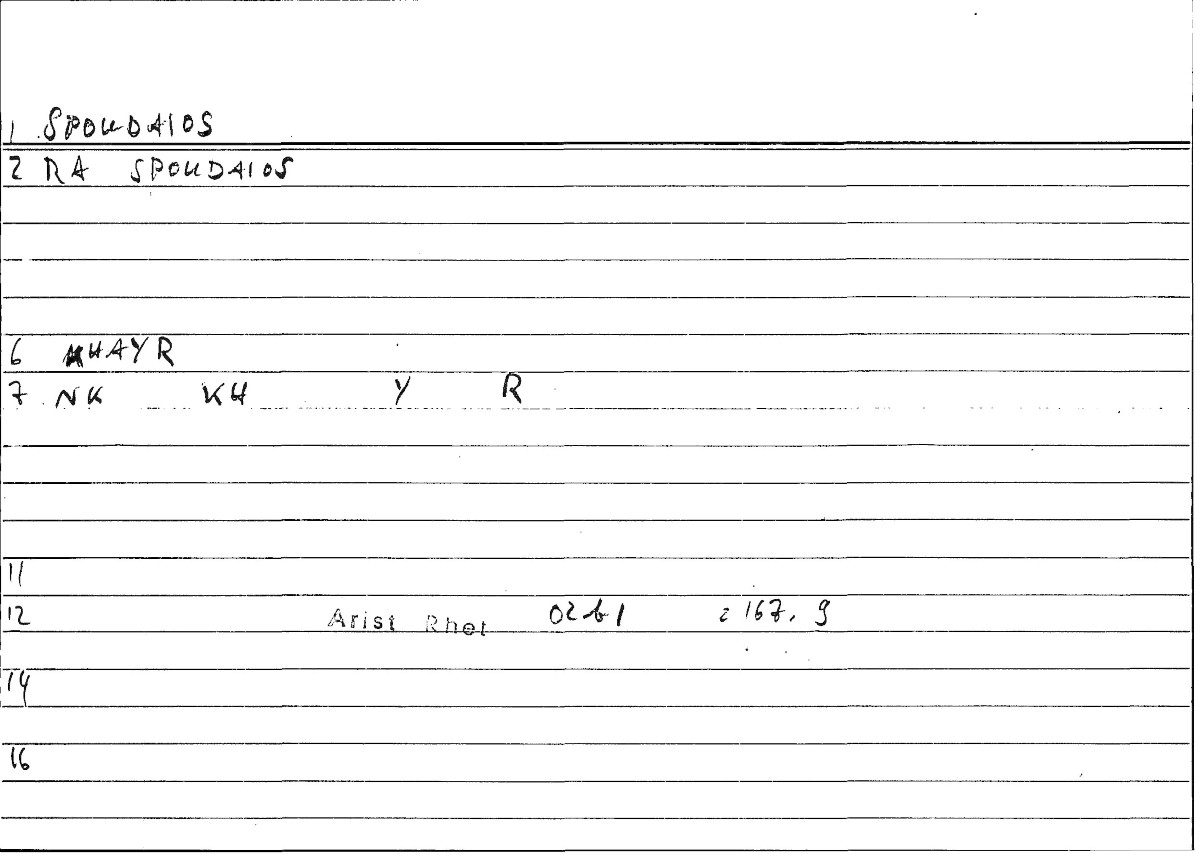 1 SPOUDAIOS
2 RA SPOUDAIOS
6 KHAYR
7 NK KH Y R
11
12 Arist Rhet 02b1 : 167, 9
14
16